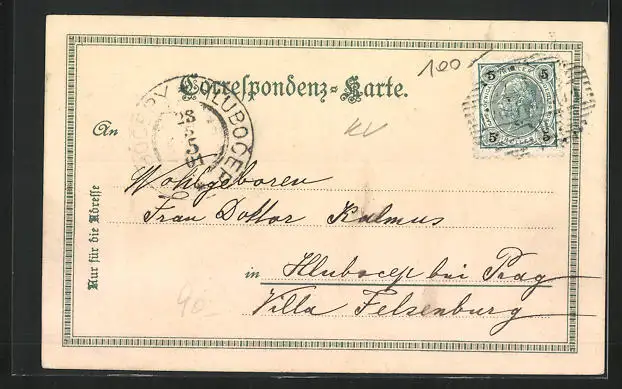 100
Correspondenz-Karte.
5 5
HLUBOČEPY HLUBOČEP
28
5
01
5 5
An
KV
Wohlgeboren
Frau Doktor Kalmus
in Hlubočep bei Prag
Villa Felsenburg
90
Nur für die Adresse